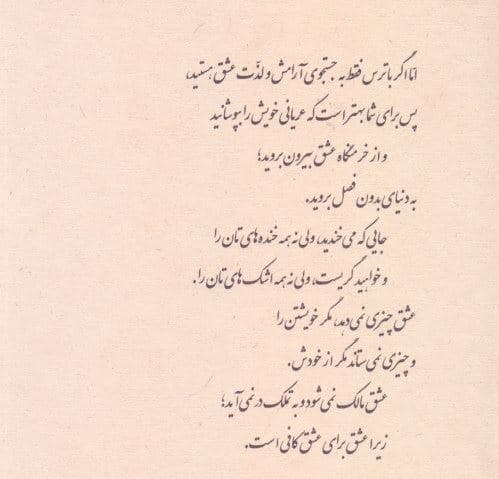 امّا اگر با ترس فقط به جستجوی آرامش و لذّت عشق هستید،
پس برای شما بهتر است که عریانی خویش را بپوشانید
و از خرمنگاه عشق بیرون بروید؛
به دنیای بدون فصل بروید.
جایی که می خندید، ولی نه همه خنده های تان را
و خواهید گریست، ولی نه همه اشک های تان را.
عشق چیزی نمی دهد، مگر خویشتن را
و چیزی نمی ستاند مگر از خودش.
عشق مالک نمی شود و به تملک در نمی آید؛
زیرا عشق برای عشق کافی است.